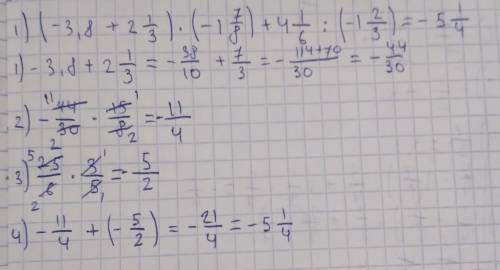 1) (-3,8 + 2 1/3) · (-1 7/8) + 4 1/6 : (-1 2/3) = - 5 1/4
1) -3,8 + 2 1/3 = - 38/10 + 7/3 = - 114+70/30 = - 44/30
2) - 44/30 · 15/8 = - 11/4
3) 25/6 · 3/5 = - 5/2
4) - 11/4 + (- 5/2) = - 21/4 = - 5 1/4